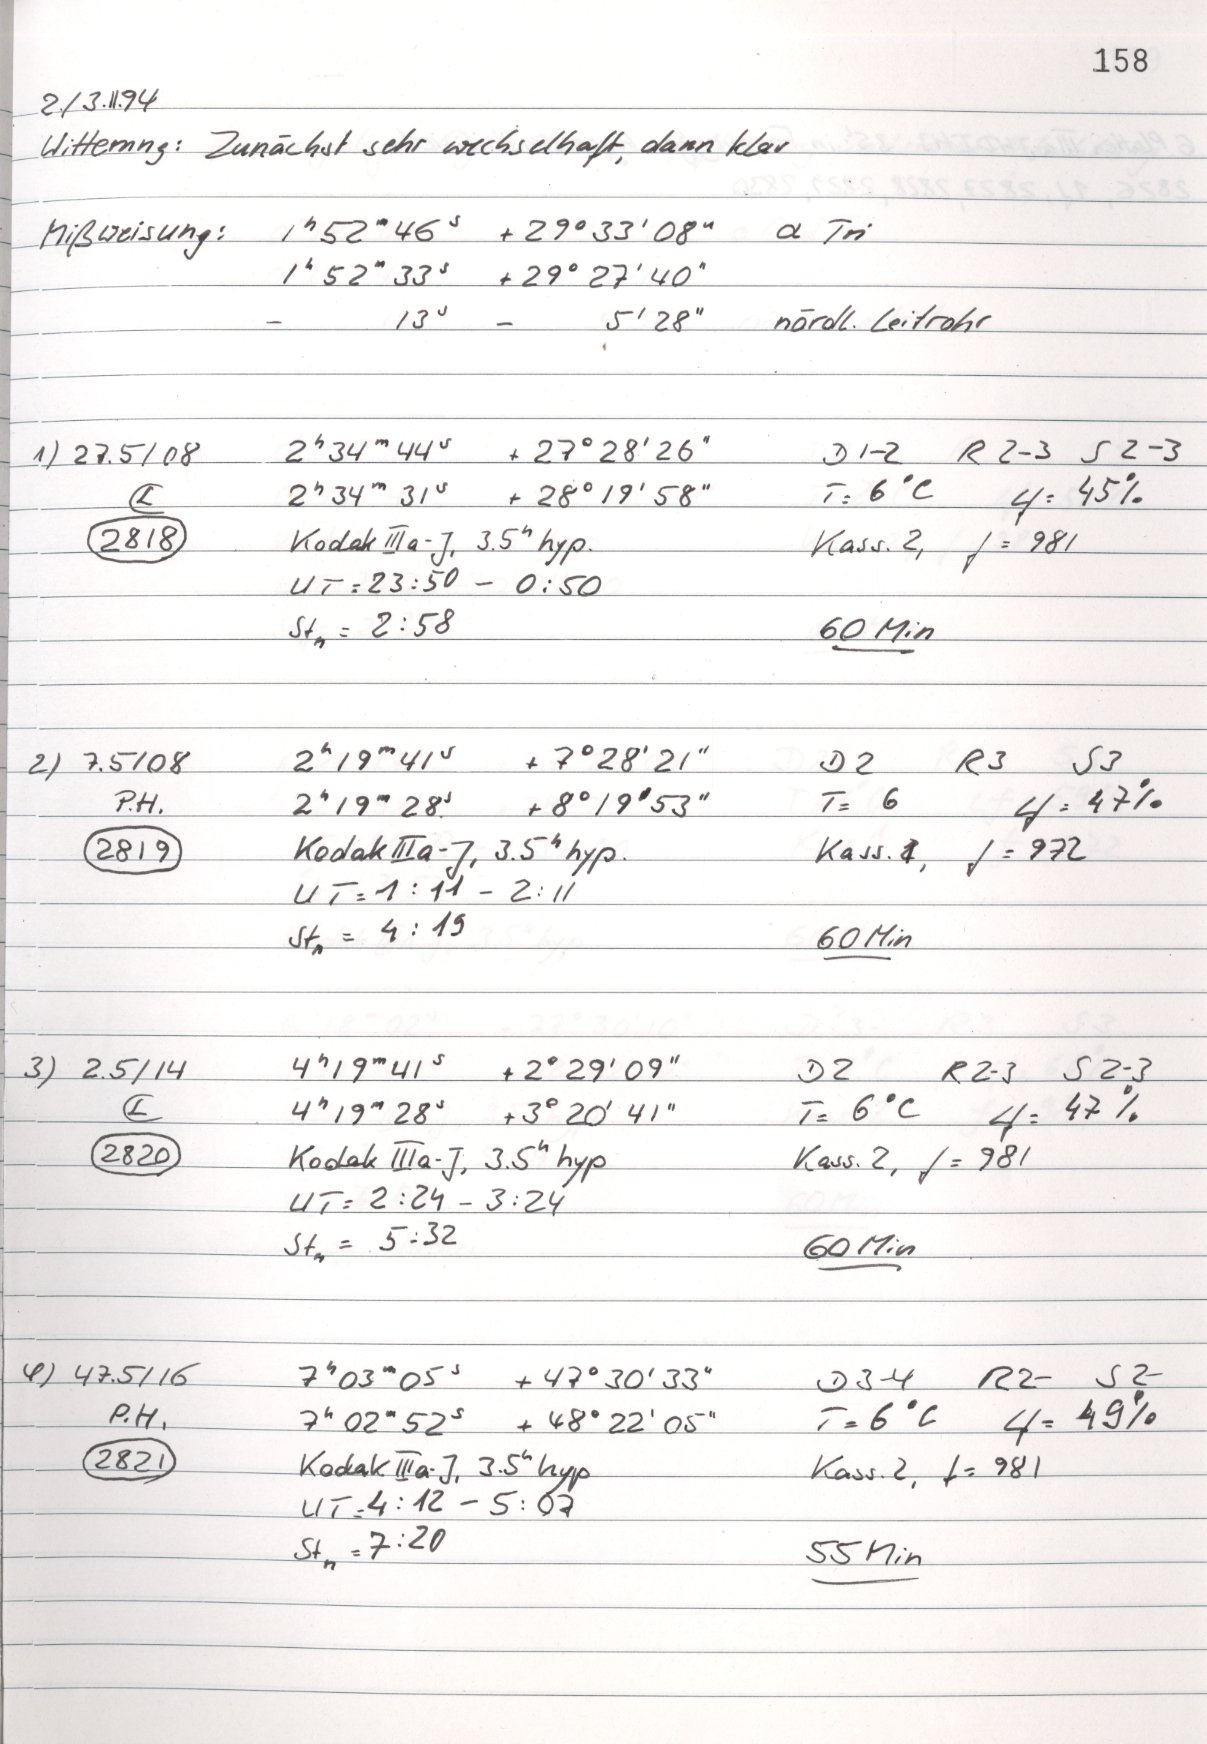 158
2./3.II.94
Witterung: Zunächst sehr wechselhaft, dann klar
Mißweisung: 1ʰ52ᵐ46ˢ +29°33'08" α Tri
1ʰ52ᵐ33ˢ +29°27'40"
- 13ˢ - 5'28" nördl. Leitrohr
1) 27.5/08 2ʰ34ᵐ44ˢ +27°28'26" D1-2 R2-3 S2-3
2ʰ34ᵐ31ˢ +28°19'58" T=6°C φ=45%
2818 Kodak IIIa-J, 3.5ʰ hyp. Kass. 2, f=981
UT=23:50 - 0:50
Stₙ = 2:58 60 Min
2) 7.5/08 2ʰ19ᵐ41ˢ +7°28'21" D2 R3 S3
P.H. 2ʰ19ᵐ28ˢ +8°19'53" T= 6 φ=47%
2819 Kodak IIIa-J, 3.5ʰ hyp. Kass. 1, f=972
UT=1:11 - 2:11
Stₙ = 4:19 60 Min
3) 2.5/14 4ʰ19ᵐ41ˢ +2°29'09" D2 R2-3 S2-3
4ʰ19ᵐ28ˢ +3°20'41" T= 6°C φ=47%
2820 Kodak IIIa-J, 3.5ʰ hyp Kass. 2, f=981
UT=2:24 - 3:24
Stₙ = 5:32 60 Min
4) 47.5/16 7ʰ03ᵐ05ˢ +47°30'33" D3-4 R2- S2-
P.H. 7ʰ02ᵐ52ˢ +48°22'05" T=6°C φ=49%
2821 Kodak IIIa-J, 3.5ʰ hyp Kass. 2, f=981
UT=4:12 - 5:07
Stₙ = 7:20 55 Min